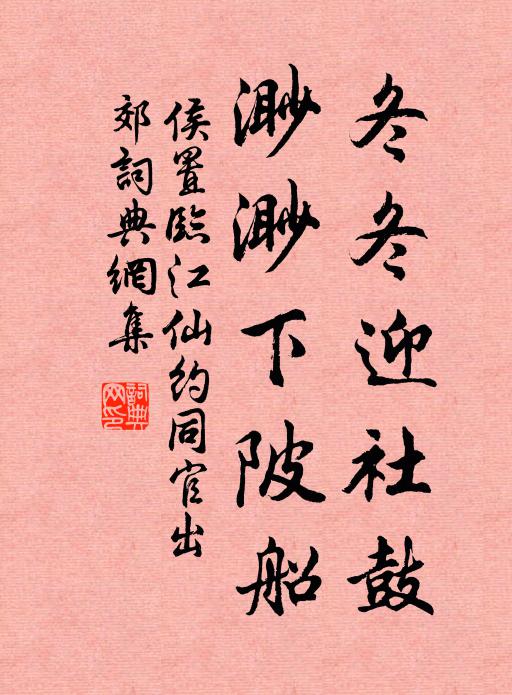 冬冬迎社鼓
渺渺下陂船
侯置臨江仙約同官出
郊詞典網集
詞典
网印